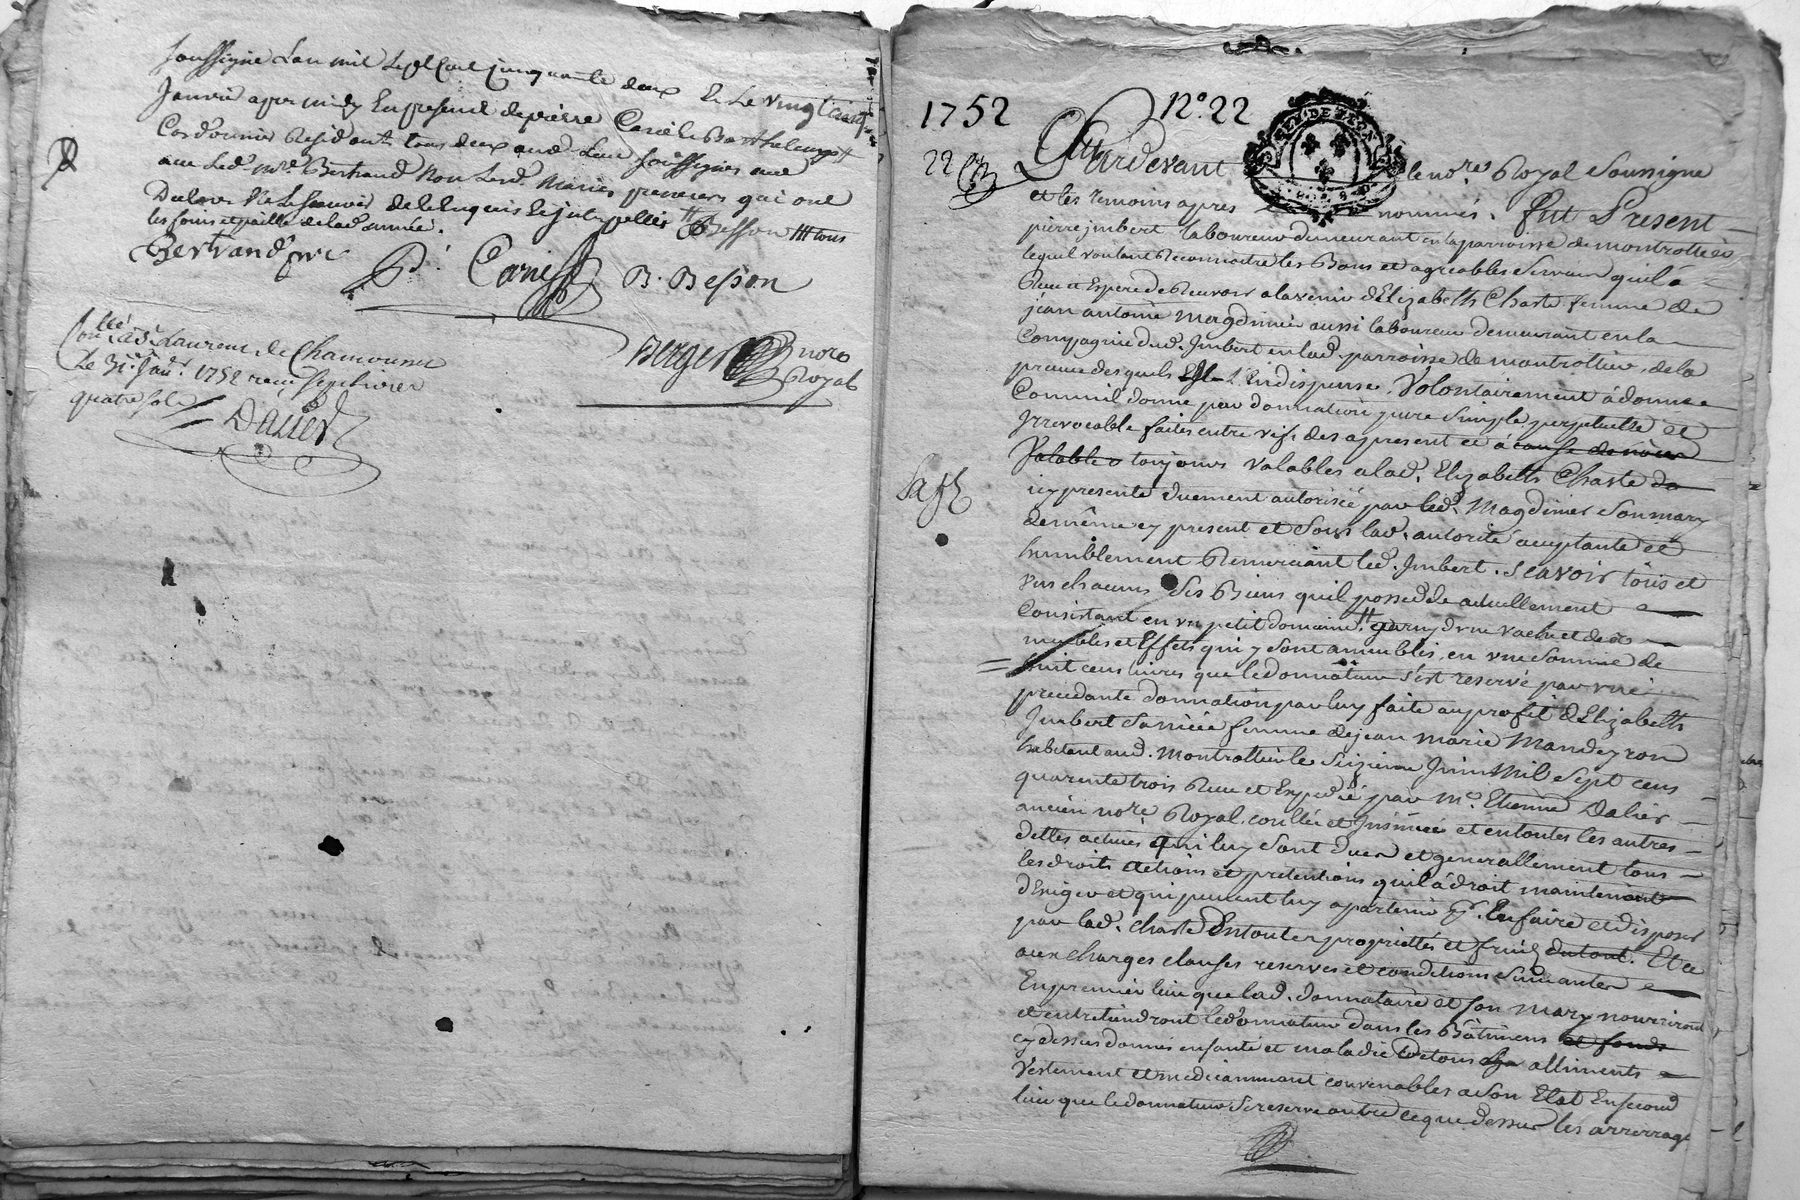 soussigné Lan mil sept cent cinquante deux & Le vingt
Janvier apres midy En presence de pierre Carié & Barthelemy
Cordonnier Residents tous deux aud. Lieu soussignes avec
avec Led. Me. Bertrand Non Lesd. Mariés preneurs qui ont
Declaré Ne le sçavoir de ce Enquis & Interpellés Besson tous
les foins et paille de lad. année.
Bertrand
P. Carié B. Besson
Berger nore
Royal
Conllé à St. Laurent de Chamousset
Le 31e. Janr. 1752 reçu sept livres
quatre sols
Dalier
1752 No. 22
22
Pardevant le nore. Royal Soussigné
et les temoins apres nommés. fut Present
pierre imbert laboureur demeurant en la parroisse de montrottier
lequel voulant Reconnoitre les Bons et agreables Services quil à
Reçu et Espere de Recevoir a lavenir d'Elizabeth Charte femme de
jean antoine Magdinier aussi laboureur demeurant en la
Compagnie dud. Imbert en lad. parroisse de montrottier, de la
preuve desquels Il L'En dispense, Volontairement à donné
Comme il donne par donnation pure Simple, perpetuelle et
Irrevocable faite entre vifs des apresent et à cause de
Valable toujours valables a lad. Elizabeth Charte
icy presente duement autorisée par led. Magdinier Son mary
de même cy present et Sous lad. autorité acceptante et
humblement Remerciant led. Imbert. Scavoir tous et
un chacuns Ses Biens quil possedde actuellement
Consistant en un petit domaine garny d'une vache et de
meubles et Effets qui y Sont ameublis, en une Somme de
huit cens livres que le donnateur s'est reservé par une
precedante donnation par luy faite au profit d'Elizabeth
Imbert Sa niéce femme de jean marie Mandeyron
habitant aud. montrottier le Seizieme Juin Mil Sept cens
quarente trois Reçue et Expedié par Me. Etienne Dalier
ancien nore. Royal, conllée et Insinuée et en toutes les autres
dettes actives qui luy Sont dues et generallement tous
les droits actions et pretentions quil à droit maintenant
d'Exiger et qui peuvent luy apartenir pr. En faire et disposer
par lad. Charte En toutes proprietés et fruits du tout. Et ce
aux charges clauses reserves et conditions Suivantes
En premier lieu que lad. donnataire et Son mary nourriront
et entretiendront le donnateur dans les Bâtimens et fonds
cy dessus donnés en santé et maladie de tous alliments
Vestement et medicamment convenables a Son Etat En second
lieu que le donnateur Se reserve outre ce que dessus les arrerrages